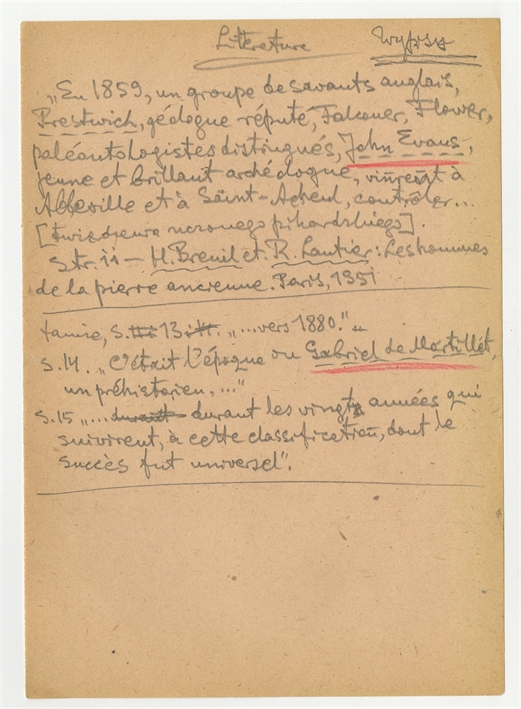 Litterature Wypisy
„En 1859, un groupe de savants anglais,
Prestwich, géologue réputé, Falconer, Flower,
paléontologistes distingués, John Evans,
jeune et brillant archéologue, vinrent à
Abbeville et à Saint-Acheul, contrôler...
[twierdzenia uczonego pikardskiego].
Str. 11 – H. Breuil et R. Lantier: Les hommes
de la pierre ancienne. Paris, 1951
tamże, s. 13 „...vers 1880."
s. 14. „C'était l'époque ou Gabriel de Mortillet,
un préhistorien, ..."
s. 15 „... durant durant les vingts années qui
suivirent, à cette classification, dont le
succès fut universel".